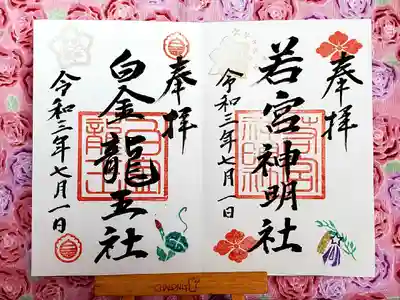 奉拝
若宮神明社
令和三年七月一日
奉拝
白金龍王社
令和三年七月一日